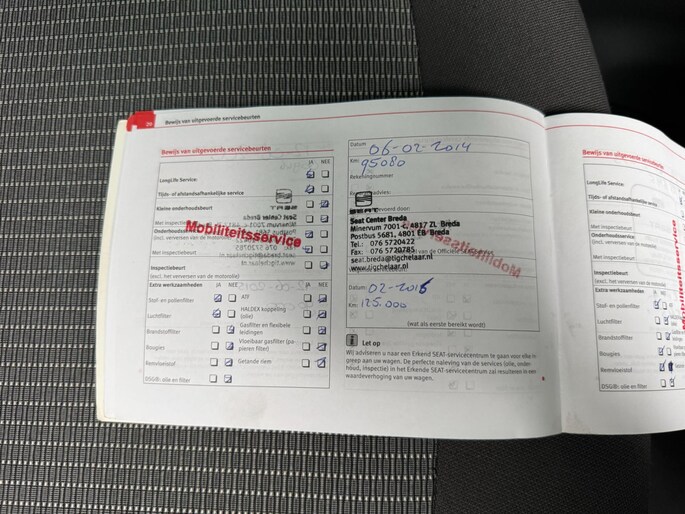 20
Bewijs van uitgevoerde servicebeurten
Bewijs van uitgevoerde servicebeurten
JA NEE
LongLife Service:
Tijds- of afstandsafhankelijke service
Kleine onderhoudsbeurt
Met inspectiebeurt
Onderhoudsbeurt
(incl. verversen van de motorolie)
Met inspectiebeurt
Inspectiebeurt
(excl. het verversen van de motorolie)
Mobiliteitsservice
Extra werkzaamheden JA NEE JA NEE
Stof- en pollenfilter
Luchtfilter
Brandstoffilter
Bougies
Remvloeistof
DSG®: olie en filter
ATF
HALDEX koppeling (olie)
Gasfilter en flexibele leidingen
Vloeibaar gasfilter (papieren filter)
Getande riem
Datum: 06-02-2014
Km: 95080
Rekeningnummer
SEAT
Seat Center Breda
Minervum 7001-c, 4817 ZL Breda
Postbus 5681, 4801 EB Breda
Tel.: 076 5720422
Fax: 076 5720785
seat.breda@tigchelaar.nl
www.tigchelaar.nl
Datum: 02-2016
Km: 125.000
(wat als eerste bereikt wordt)
Let op
Wij adviseren u naar een Erkend SEAT-servicecentrum te gaan voor elke in-
greep aan uw wagen. De perfecte naleving van de services (olie, onder-
houd, inspectie) in het Erkende SEAT-servicecentrum zal resulteren in een
waardeverhoging van uw wagen.
Bewijs van uitgevoerde
LongLife Service:
Tijds- of afstandsafhankelijke
Kleine onderhoudsbeurt
Met inspectiebeurt
Onderhoudsbeurt
(incl. verversen van de
Met inspectiebeurt
Inspectiebeurt
(excl. het verversen van de motorolie)
Extra werkzaamheden JA
Stof- en pollenfilter
Luchtfilter
Brandstoffilter
Bougies
Remvloeistof
DSG®: olie en filter